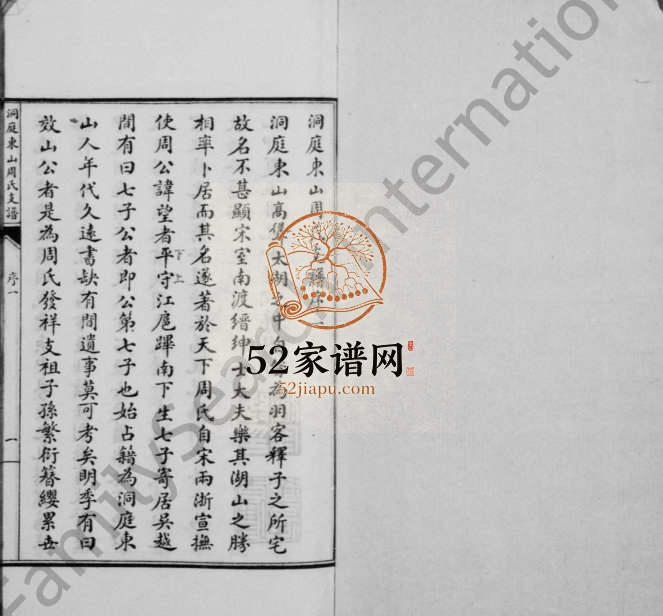 洞庭東山周
洞庭東山高 太湖 中 為羽客釋子之所宅
故名不甚顯宋室南渡縉紳士大夫樂其湖山之勝
相率卜居而其名遂著於天下周氏自宋兩浙宣撫
使周公諱望者平守江扈蹕南下生七子寄居吳越
下上
間有曰七子公者即公第七子也始占籍為洞庭東
山人年代久遠書缺有間遺事莫可考矣明季有曰
效山公者是為周氏發祥支祖子孫繁衍簪纓累世
洞庭東山周氏支譜
序一
一
52家谱网
52jiapu.com
FamilySearch International